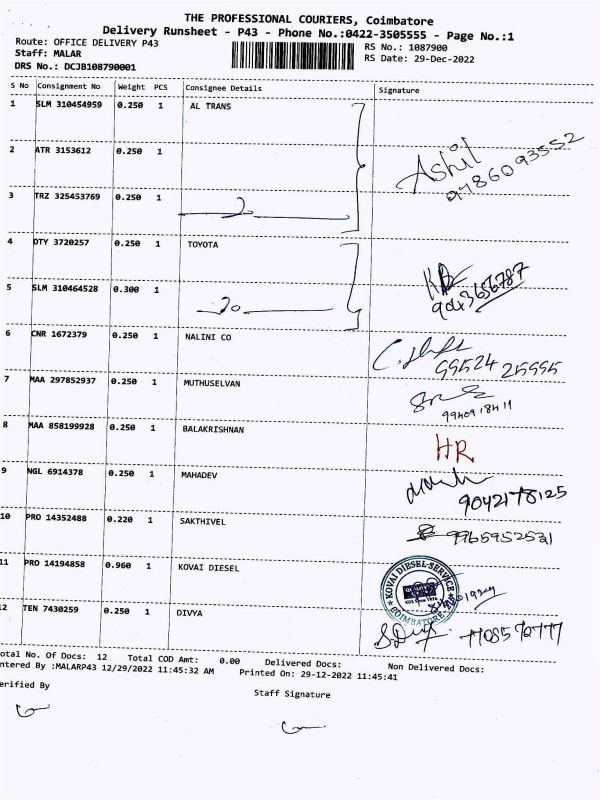 THE PROFESSIONAL COURIERS, Coimbatore
Delivery Runsheet - P43 - Phone No.:0422-3505555 - Page No.:1
Route: OFFICE DELIVERY P43
RS No.: 1087900
Staff: MALAR
RS Date: 29-Dec-2022
DRS No.: DCJB108790001
S No Consignment No Weight PCS Consignee Details Signature
1 SLM 310454959 0.250 1 AL TRANS
2 ATR 3153612 0.250 1
Ashil
9786093552
3 TRZ 325453769 0.250 1
4 DTY 3720257 0.250 1 TOYOTA
5 SLM 310464528 0.300 1
9043656787
6 CNR 1672379 0.250 1 NALINI CO
99524 25995
7 MAA 297852937 0.250 1 MUTHUSELVAN
8 MAA 858199928 0.250 1 BALAKRISHNAN
HR
9 NGL 6914378 0.250 1 MAHADEV
9042178125
10 PRO 14352488 0.220 1 SAKTHIVEL
9965952531
11 PRO 14194858 0.960 1 KOVAI DIESEL
KOVAI DIESEL SERVICE
COIMBATORE
12 TEN 7430259 0.250 1 DIVYA
otal No. Of Docs: 12 Total COD Amt: 0.00 Delivered Docs: Non Delivered Docs:
ntered By :MALARP43 12/29/2022 11:45:32 AM Printed On: 29-12-2022 11:45:41
erified By
Staff Signature